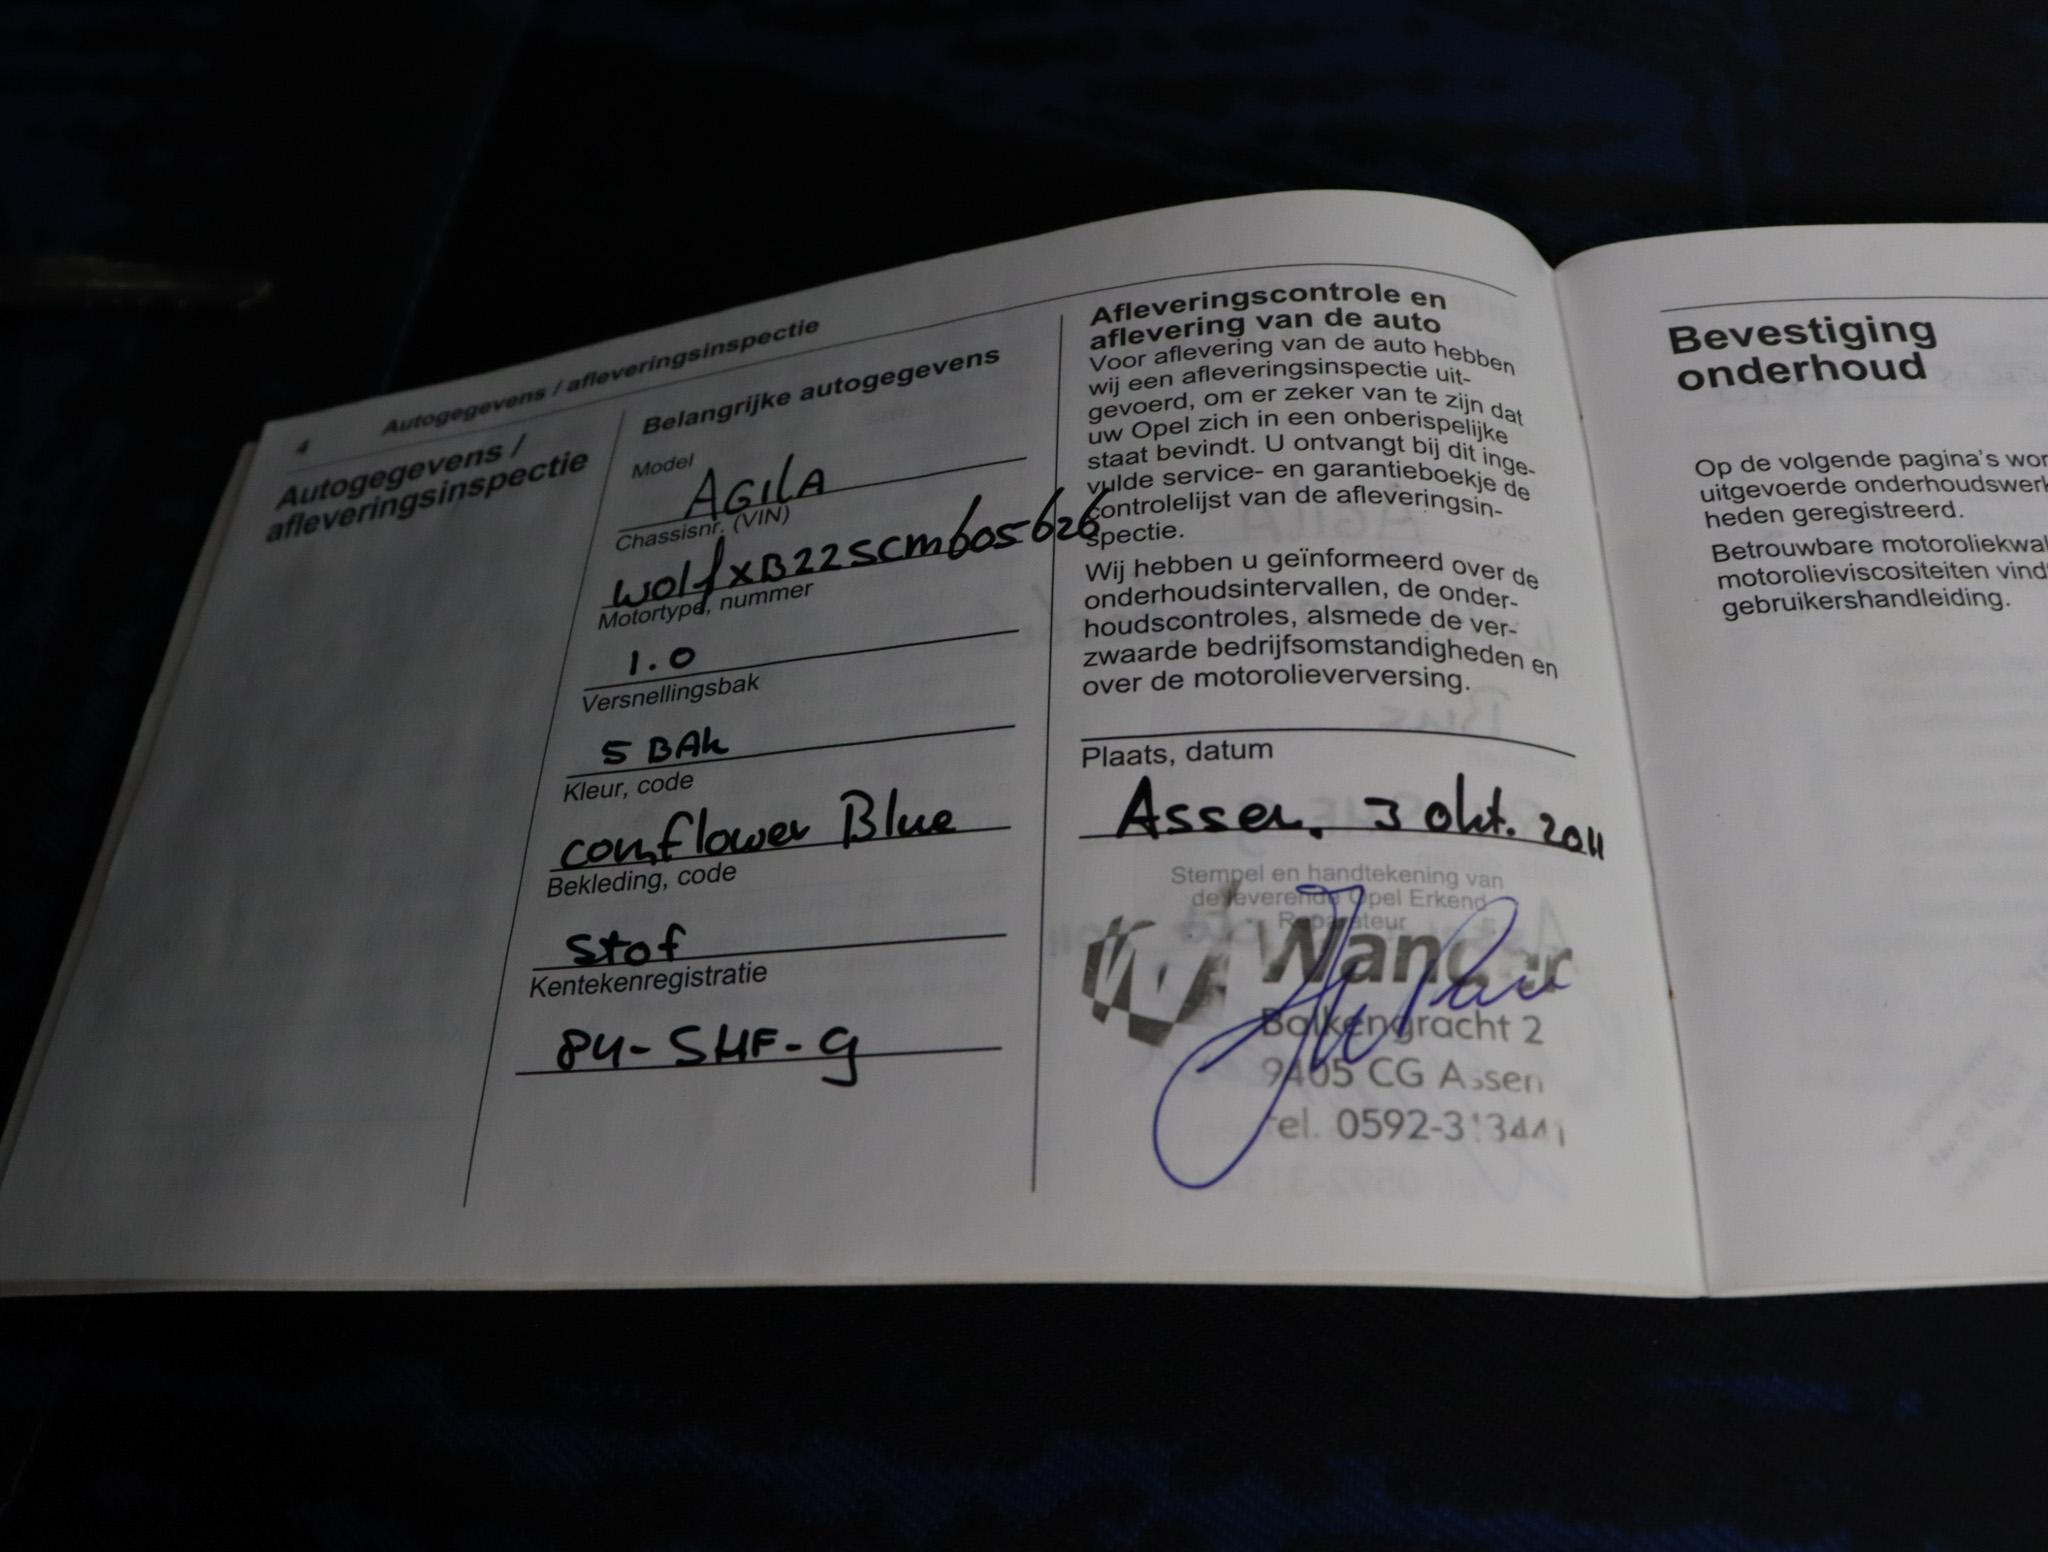 4 Autogegevens / afleveringsinspectie
Autogegevens /
afleveringsinspectie
Belangrijke autogegevens
Model
AGILA
Chassisnr. (VIN)
WolfxB22SCM605626
Motortype, nummer
1.0
Versnellingsbak
5 BAk
Kleur, code
cornflower Blue
Bekleding, code
Stof
Kentekenregistratie
84-SHF-9
Afleveringscontrole en
aflevering van de auto
Voor aflevering van de auto hebben
wij een afleveringsinspectie uit-
gevoerd, om er zeker van te zijn dat
uw Opel zich in een onberispelijke
staat bevindt. U ontvangt bij dit inge-
vulde service- en garantieboekje de
controlelijst van de afleveringsin-
spectie.
Wij hebben u geïnformeerd over de
onderhoudsintervallen, de onder-
houdscontroles, alsmede de ver-
zwaarde bedrijfsomstandigheden en
over de motorolieverversing.
Plaats, datum
Assen, 3 okt. 2011
Stempel en handtekening van
de leverende Opel Erkend
Reparateur
Balkengracht 2
9405 CG Assen
Tel. 0592-313441
Bevestiging
onderhoud
Op de volgende pagina's wor
uitgevoerde onderhoudswerk
heden geregistreerd.
Betrouwbare motoroliekwal
motorolieviscositeiten vind
gebruikershandleiding.